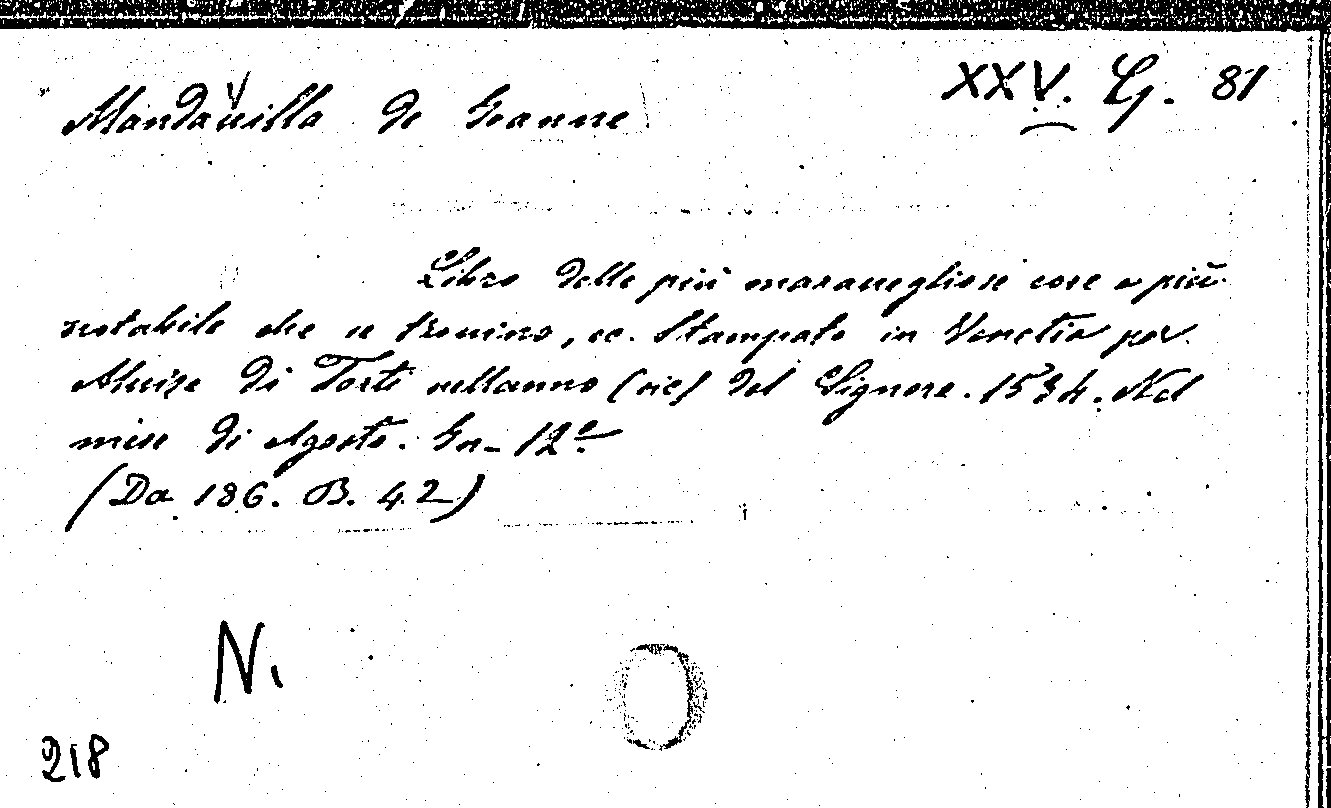 Mandauilla de Ioanne
XXV. G. 81
Libro delle più marauegliose cose e più
notabile che se trouino, ec. Stampato in Venetia per
Aluise di Torti nellanno (sic) del Signore. 1534. Nel
mese di Agosto. In-12º
(Da 186. B. 42)
N.
218